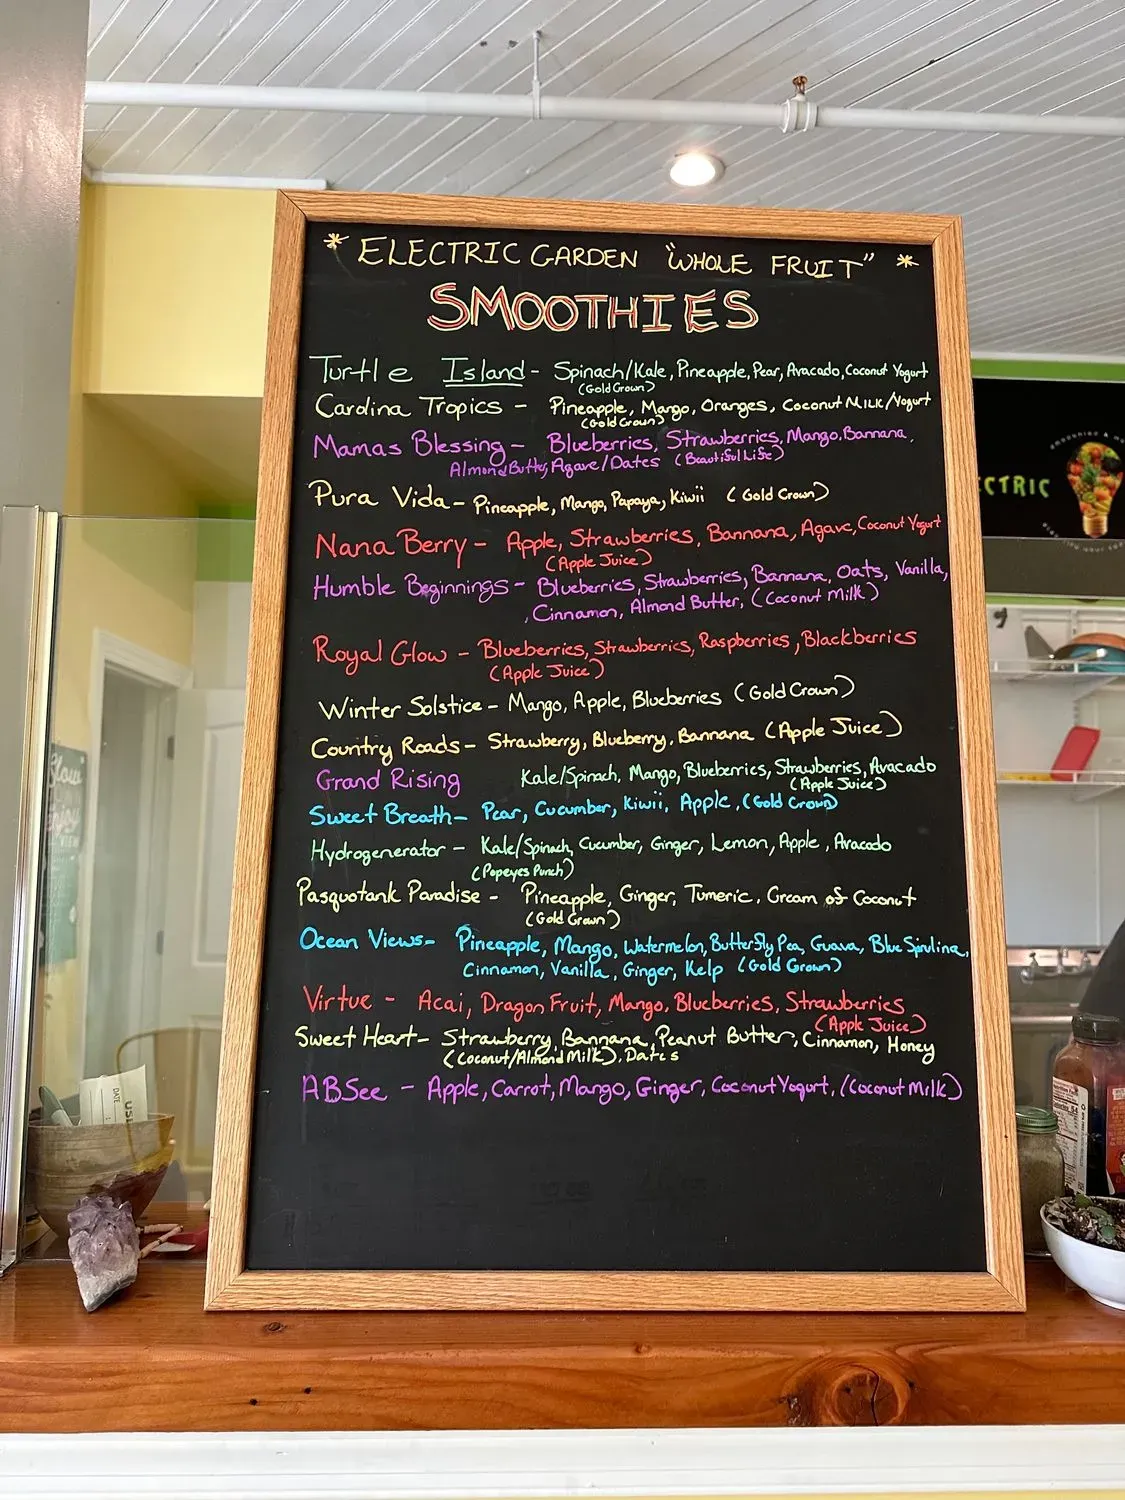 * ELECTRIC GARDEN "WHOLE FRUIT" *
SMOOTHIES
Turtle Island - Spinach/Kale, Pineapple, Pear, Avacado, Coconut Yogurt
(Gold Crown)
Carolina Tropics - Pineapple, Mango, Oranges, Coconut Milk/Yogurt
(Gold Crown)
Mamas Blessing - Blueberries, Strawberries, Mango, Bannana,
Almond Butter, Agave/Dates (Beautiful Life)
Pura Vida - Pineapple, Mango, Papaya, Kiwii (Gold Crown)
Nana Berry - Apple, Strawberries, Bannana, Agave, Coconut Yogurt
(Apple Juice)
Humble Beginnings - Blueberries, Strawberries, Bannana, Oats, Vanilla,
Cinnamon, Almond Butter, (Coconut Milk)
Royal Glow - Blueberries, Strawberries, Raspberries, Blackberries
(Apple Juice)
Winter Solstice - Mango, Apple, Blueberries (Gold Crown)
Country Roads - Strawberry, Blueberry, Bannana (Apple Juice)
Grand Rising Kale/Spinach, Mango, Blueberries, Strawberries, Avacado
(Apple Juice)
Sweet Breath - Pear, Cucumber, Kiwii, Apple, (Gold Crown)
Hydrogenerator - Kale/Spinach, Cucumber, Ginger, Lemon, Apple, Avacado
(Popeyes Punch)
Pasquotank Paradise - Pineapple, Ginger, Tumeric, Cream of Coconut
(Gold Crown)
Ocean Views - Pineapple, Mango, Watermelon, Butterfly Pea, Guava, Blue Spirulina,
Cinnamon, Vanilla, Ginger, Kelp (Gold Crown)
Virtue - Acai, Dragon Fruit, Mango, Blueberries, Strawberries
(Apple Juice)
Sweet Heart - Strawberry, Bannana, Peanut Butter, Cinnamon, Honey
(Coconut/Almond Milk), Dates
ABSee - Apple, Carrot, Mango, Ginger, Coconut Yogurt, (Coconut Milk)
CTRIC
DATE